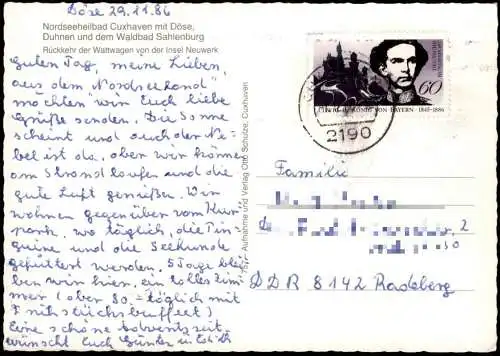 Döse 29.11.86
Nordseeheilbad Cuxhaven mit Döse,
Duhnen und dem Waldbad Sahlenburg
Rückkehr der Wattwagen von der Insel Neuwerk
Guten Tag, meine Lieben,
aus dem Nordseebad"
möchten wir Euch liebe
Grüße senden. Die Sonne
scheint und auch der Ne-
bel ist da, aber wir können
am Strand laufen und die
gute Luft genießen. Wir
wohnen gegenüber vom Kur-
park, wo täglich, die Pin-
guine und die Seehunde
gefüttert werden. 5 Tage blei-
ben wir hier, ein tolles Zim-
mer (ober 80.= täglich mit
Frühstücksbuffeet)
Eine schöne Adventszeit
wünscht Euch Günter u. Edith
Aufnahme und Verlag Otto Schulze, Cuxhaven
60
DEUTSCHE BUNDESPOST
LUDWIG II. KÖNIG VON BAYERN 1845-1886
2190
Familie
2
DDR 8142 Radeberg